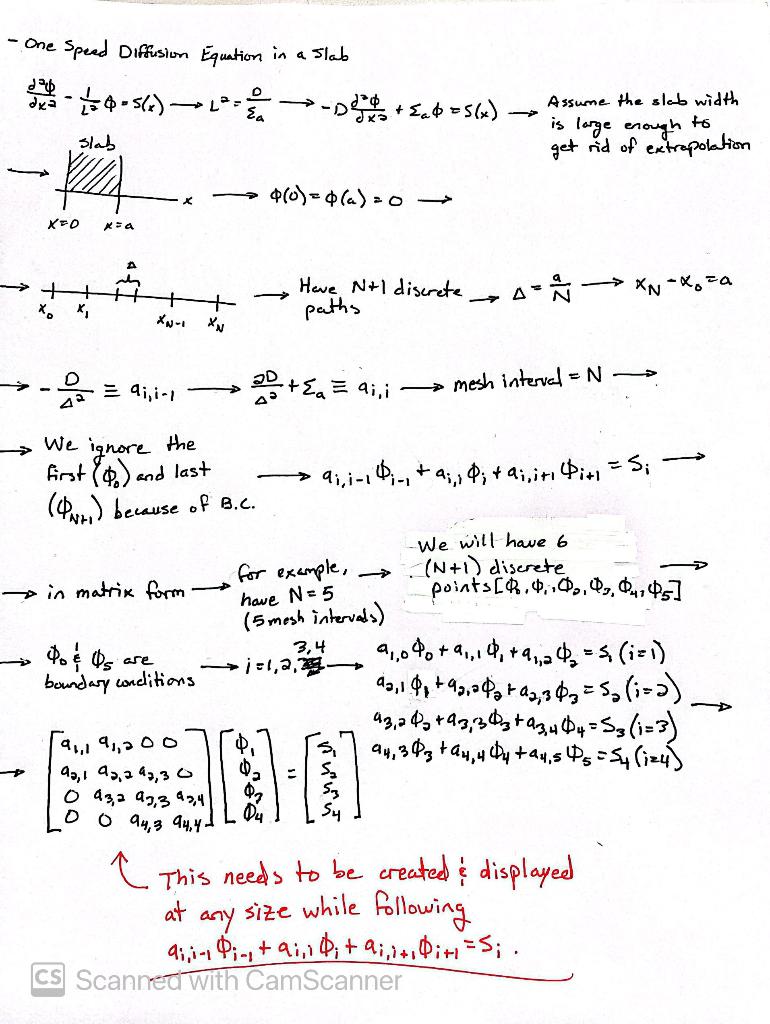 - One Speed Diffusion Equation in a Slab
d²φ/dx² - 1/L² φ = S(x) → L² = D/Σa → -D d²φ/dx² + Σaφ = S(x) → Assume the slab width
is large enough to
get rid of extrapolation
→ Slab
x → φ(0) = φ(a) = 0 →
x=0 x=a
Δ
→ x₀ x₁ xN-1 xN → Have N+1 discrete
paths → Δ = a/N → xN - x₀ = a
→ - D/Δ² ≡ ai,i-1 → 2D/Δ² + Σa ≡ ai,i → mesh interval = N →
→ We ignore the
first (φ₀) and last
(φN+1) because of B.C. → ai,i-1 φi-1 + ai,i φi + ai,i+1 φi+1 = Si →
→ in matrix form → for example,
have N = 5
(5 mesh intervals) →
We will have 6
(N+1) discrete
points [φ₀, φ₁, φ₂, φ₃, φ₄, φ₅] →
→ φ₀ & φ₅ are
boundary conditions → i = 1,2,3,4 →
a1,0 φ₀ + a1,1 φ₁ + a1,2 φ₂ = S₁ (i=1)
a2,1 φ₁ + a2,2 φ₂ + a2,3 φ₃ = S₂ (i=2) →
a3,2 φ₂ + a3,3 φ₃ + a3,4 φ₄ = S₃ (i=3)
a4,3 φ₃ + a4,4 φ₄ + a4,5 φ₅ = S₄ (i=4)
→ [a1,1 a1,2 0 0] [φ₁] = [S₁]
[a2,1 a2,2 a2,3 0] [φ₂] [S₂]
[0 a3,2 a3,3 a3,4] [φ₃] [S₃]
[0 0 a4,3 a4,4] [φ₄] [S₄]
This needs to be created & displayed
at any size while following
ai,i-1 φi-1 + ai,i φi + ai,i+1 φi+1 = Si .
CS Scanned with CamScanner